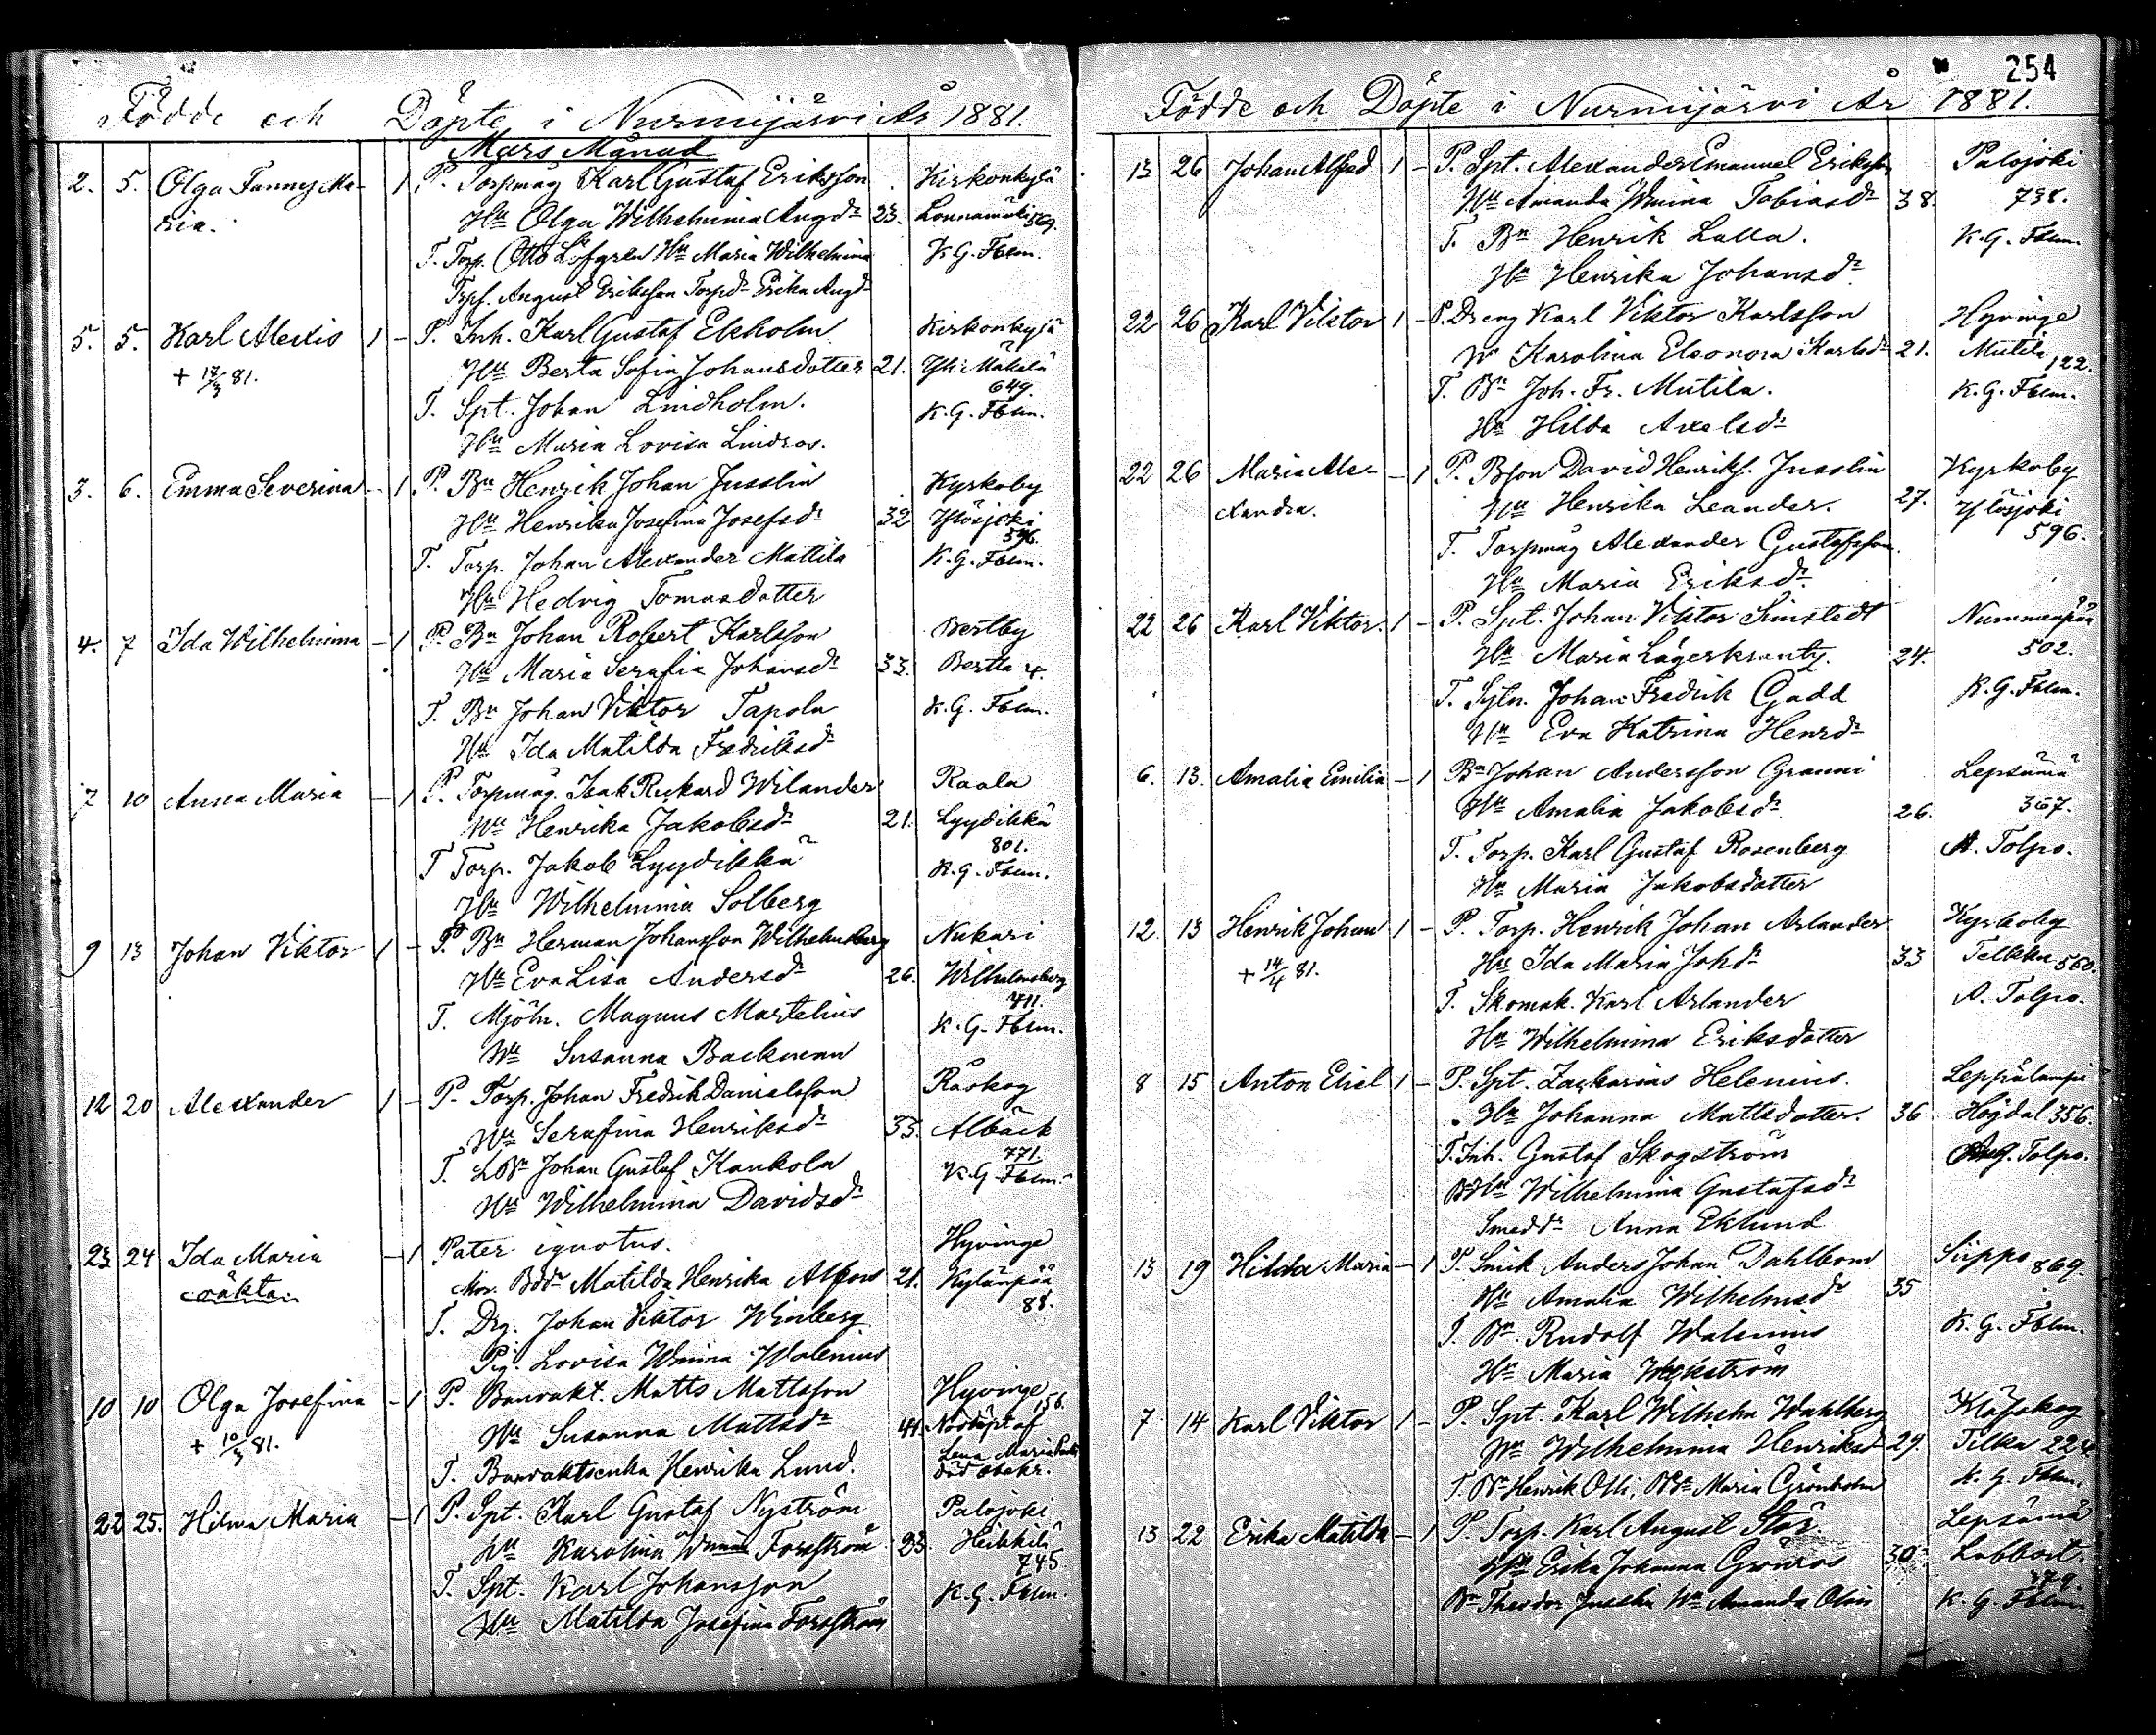 Födde och Döpte i Nurmijärvi År 1881.
Mars Månad
2. 5. Olga Fanny Ma- 1 P. Torpmåg Karl Gustaf Eriksson Kirkonkylä
ria. Hu Olga Wilhelmina Augdr 23. Lonnamäki 569.
T. Torp. Otto Löfgren Hu Maria Wilhelmina K. G. Fblm.
Torps. August Eriksson Torpdr Erika Augdr
5. 5. Karl Alexis 1 - P. Inh. Karl Gustaf Ekholm Kirkonkylä
+ 18/3 81. Hu Berta Sofia Johansdotter 21. Yli Mäkelä
649.
T. Spt. Johan Lindholm. K. G. Fblm.
Hu Maria Lovisa Lindros.
3. 6. Emma Severina - 1 P. Bn Henrik Johan Jusslin Kyrkoby
Hu Henrika Josefina Josefsdr 32 Ylösjoki
596.
T. Torp. Johan Alexander Mattila K. G. Fblm.
Hu Hedvig Tomasdotter
4. 7 Ida Wilhelmina - 1 P. Bn Johan Robert Karlsson Bertby
Hu Maria Serafia Johansdr 33. Bertta 4.
T. Bn Johan Viktor Tapola K. G. Fblm.
Hu Ida Matilda Fredriksdr
7 10 Anna Maria - 1 P. Torpmåg. Isak Rickard Wilander Raala
Hu Henrika Jakobsdr 21. Lyydikkä
801.
T Torp. Jakob Lyydikkä K. G. Fblm.
Hu Wilhelmina Solberg
9 13 Johan Viktor 1 - P. Bn Herman Johansson Wilhelmsberg Nukari
Hu Eva Lisa Andersdr 26. Wilhelmsberg
711.
T. Mjöln. Magnus Martelius K. G. Fblm.
Hu Susanna Backman
12 20 Alexander 1 - P. Torp. Johan Fredrik Danielsson Råskog
Hu Serafina Henriksdr 33. Albäck
771.
T. LBn Johan Gustaf Kankola K. G. Fblm.
Hu Wilhelmina Davidsdr
23 24 Ida Maria - 1 Pater ignotus. Hyvinge
oäkta. Mor. Bdr Matilda Henrika Alfons 21. Kylänpää
88.
T. Drg. Johan Viktor Winberg
Pig. Lovisa Wmina Walenius
10 10 Olga Josefina - 1 P. Banvakt. Matts Mattsson Hyvinge 156.
+ 10/3 81. Hu Susanna Mattsdr 44. Nöddöpt af
Lena Maria
T. Banvaktsenka Henrika Lund. död obekr.
22 25. Hilma Maria - 1 P. Spt. Karl Gustaf Nyström Palojoki
Hu Karolina Wmina Forsström 23. Heikkilä
745.
T. Spt. Karl Johansson K. G. Fblm.
Hu Matilda Josefina Forsström
254
Födde och Döpte i Nurmijärvi År 1881.
13 26 Johan Alfred 1 - P. Spt. Alexander Emanuel Eriksson Palojoki
Hu Amanda Wmina Tobiasdr 38. 738.
T. Bn Henrik Lalla. K. G. Fblm.
Hu Henrika Johansdr
22 26 Karl Viktor 1 - P. Dreng Karl Viktor Karlsson Hyvinge
Hu Karolina Eleonora Karlsdr 21. Mutila 122.
T. Bn Joh. Fr. Mutila. K. G. Fblm.
Hu Hilda Axelsdr
22 26 Maria Ale- - 1 P. Bson David Henrikss. Jusslin Kyrkoby
xandra. Hu Henrika Leander. 27. Ylösjoki
596.
T. Torpmåg Alexander Gustafsson.
Hu Maria Eriksdr
22 26 Karl Viktor. 1 - P. Spt. Johan Viktor Simstedt Nummenpää
Hu Maria Lagerkrantz. 24. 502.
T. Sytn. Johan Fredrik Gadd K. G. Fblm.
Hu Eva Katrina Henrdr
6. 13. Amalia Emilia - 1 Bn Johan Andersson Granni Lepsämä
Hu Amalia Jakobsdr 26. 367.
T. Torp. Karl Gustaf Rosenberg A. Tolpo.
Hu Maria Jakobsdotter
12. 13 Henrik Johan 1 - P. Torp. Henrik Johan Arlander Kyrkoby
+ 14/4 81. Hu Ida Maria Johdr 33 Telkka 560.
T. Skomak. Karl Arlander A. Tolpo.
Hu Wilhelmina Eriksdotter
8 15 Anton Eliel 1 - P. Spt. Zackarias Helenius. Leppälampi
Hu Johanna Mattsdotter. 36 Högdal 356.
T. Inh. Gustaf Skogström Aug. Tolpo.
Hu Wilhelmina Gustafsdr
Smeddr Anna Eklund
13 19 Hilda Maria - 1 P. Smik Anders Johan Dahlbom Siippo 869.
Hu Amalia Wilhelmsdr 35
T. Bn. Rudolf Walenius K. G. Fblm.
Hu Maria Wykström
7 14 Karl Viktor 1 - P. Spt. Karl Wilhelm Wahlberg Klöfskog
Hu Wilhelmina Henriksdr 29. Tilka 224.
T. Bn Henrik Olli, Maria Grönholm K. G. Fblm.
13 22 Erika Matilda - 1 P. Torp. Karl August Stör. Lepsämä
Hu Erika Johanna Grönros 30. Labbort.
379.
Bn Theodor Jusslin Hu Amanda K. G. Fblm.